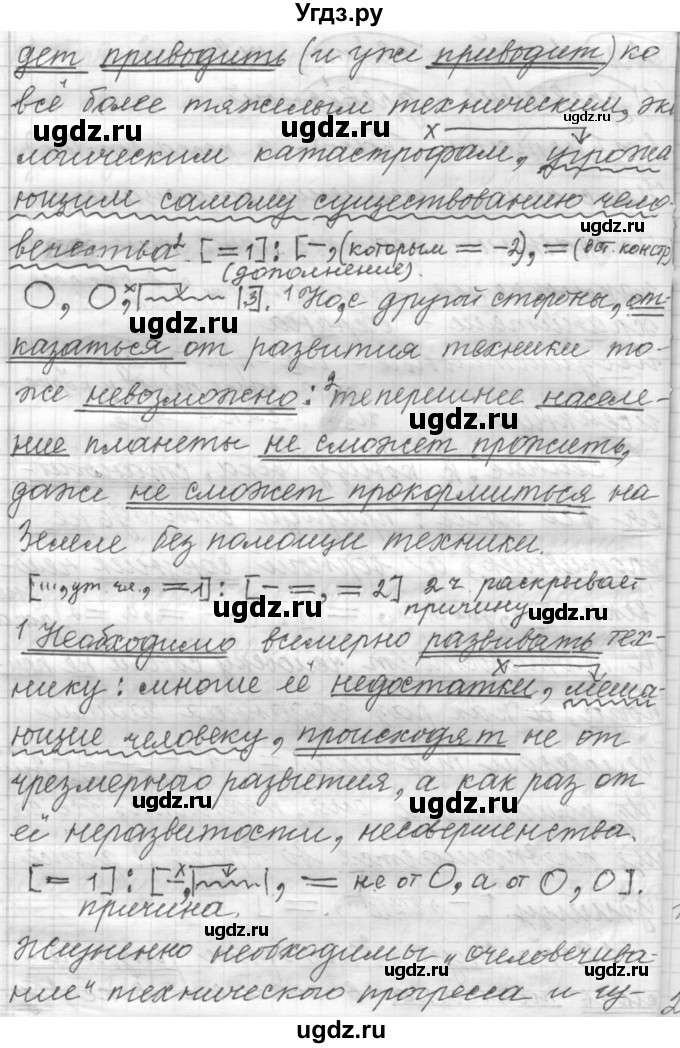 Угдз.ру
дет приводить (и уже приводит) ко
всё более тяжелым техническим, эко
логическим катастрофам, угрожа
ющим самому существованию чело-
вечества². [=1]: [-, (которым = -2), = (вст. констр)
(дополнение).
О, О, |3]. ¹Но, с другой стороны, от-
казаться от развития техники то-
же невозможно: ²теперешнее населе-
ние планеты не сможет прожить,
даже не сможет прокормиться на
Земле без помощи техники.
[..., ут. чл., =1]: [- =, = 2] 2 ч раскрывает
причину.
¹ Необходимо всемерно развивать тех-
нику: многие её недостатки, меша-
ющие человеку, происходят не от
чрезмерного развития, а как раз от
её неразвитости, несовершенства.
[= 1]: [-, , = не от О, а от О, О].
причина.
Жизненно необходимы „очеловечива-
ние" технического прогресса и гу-
ugdz.ru